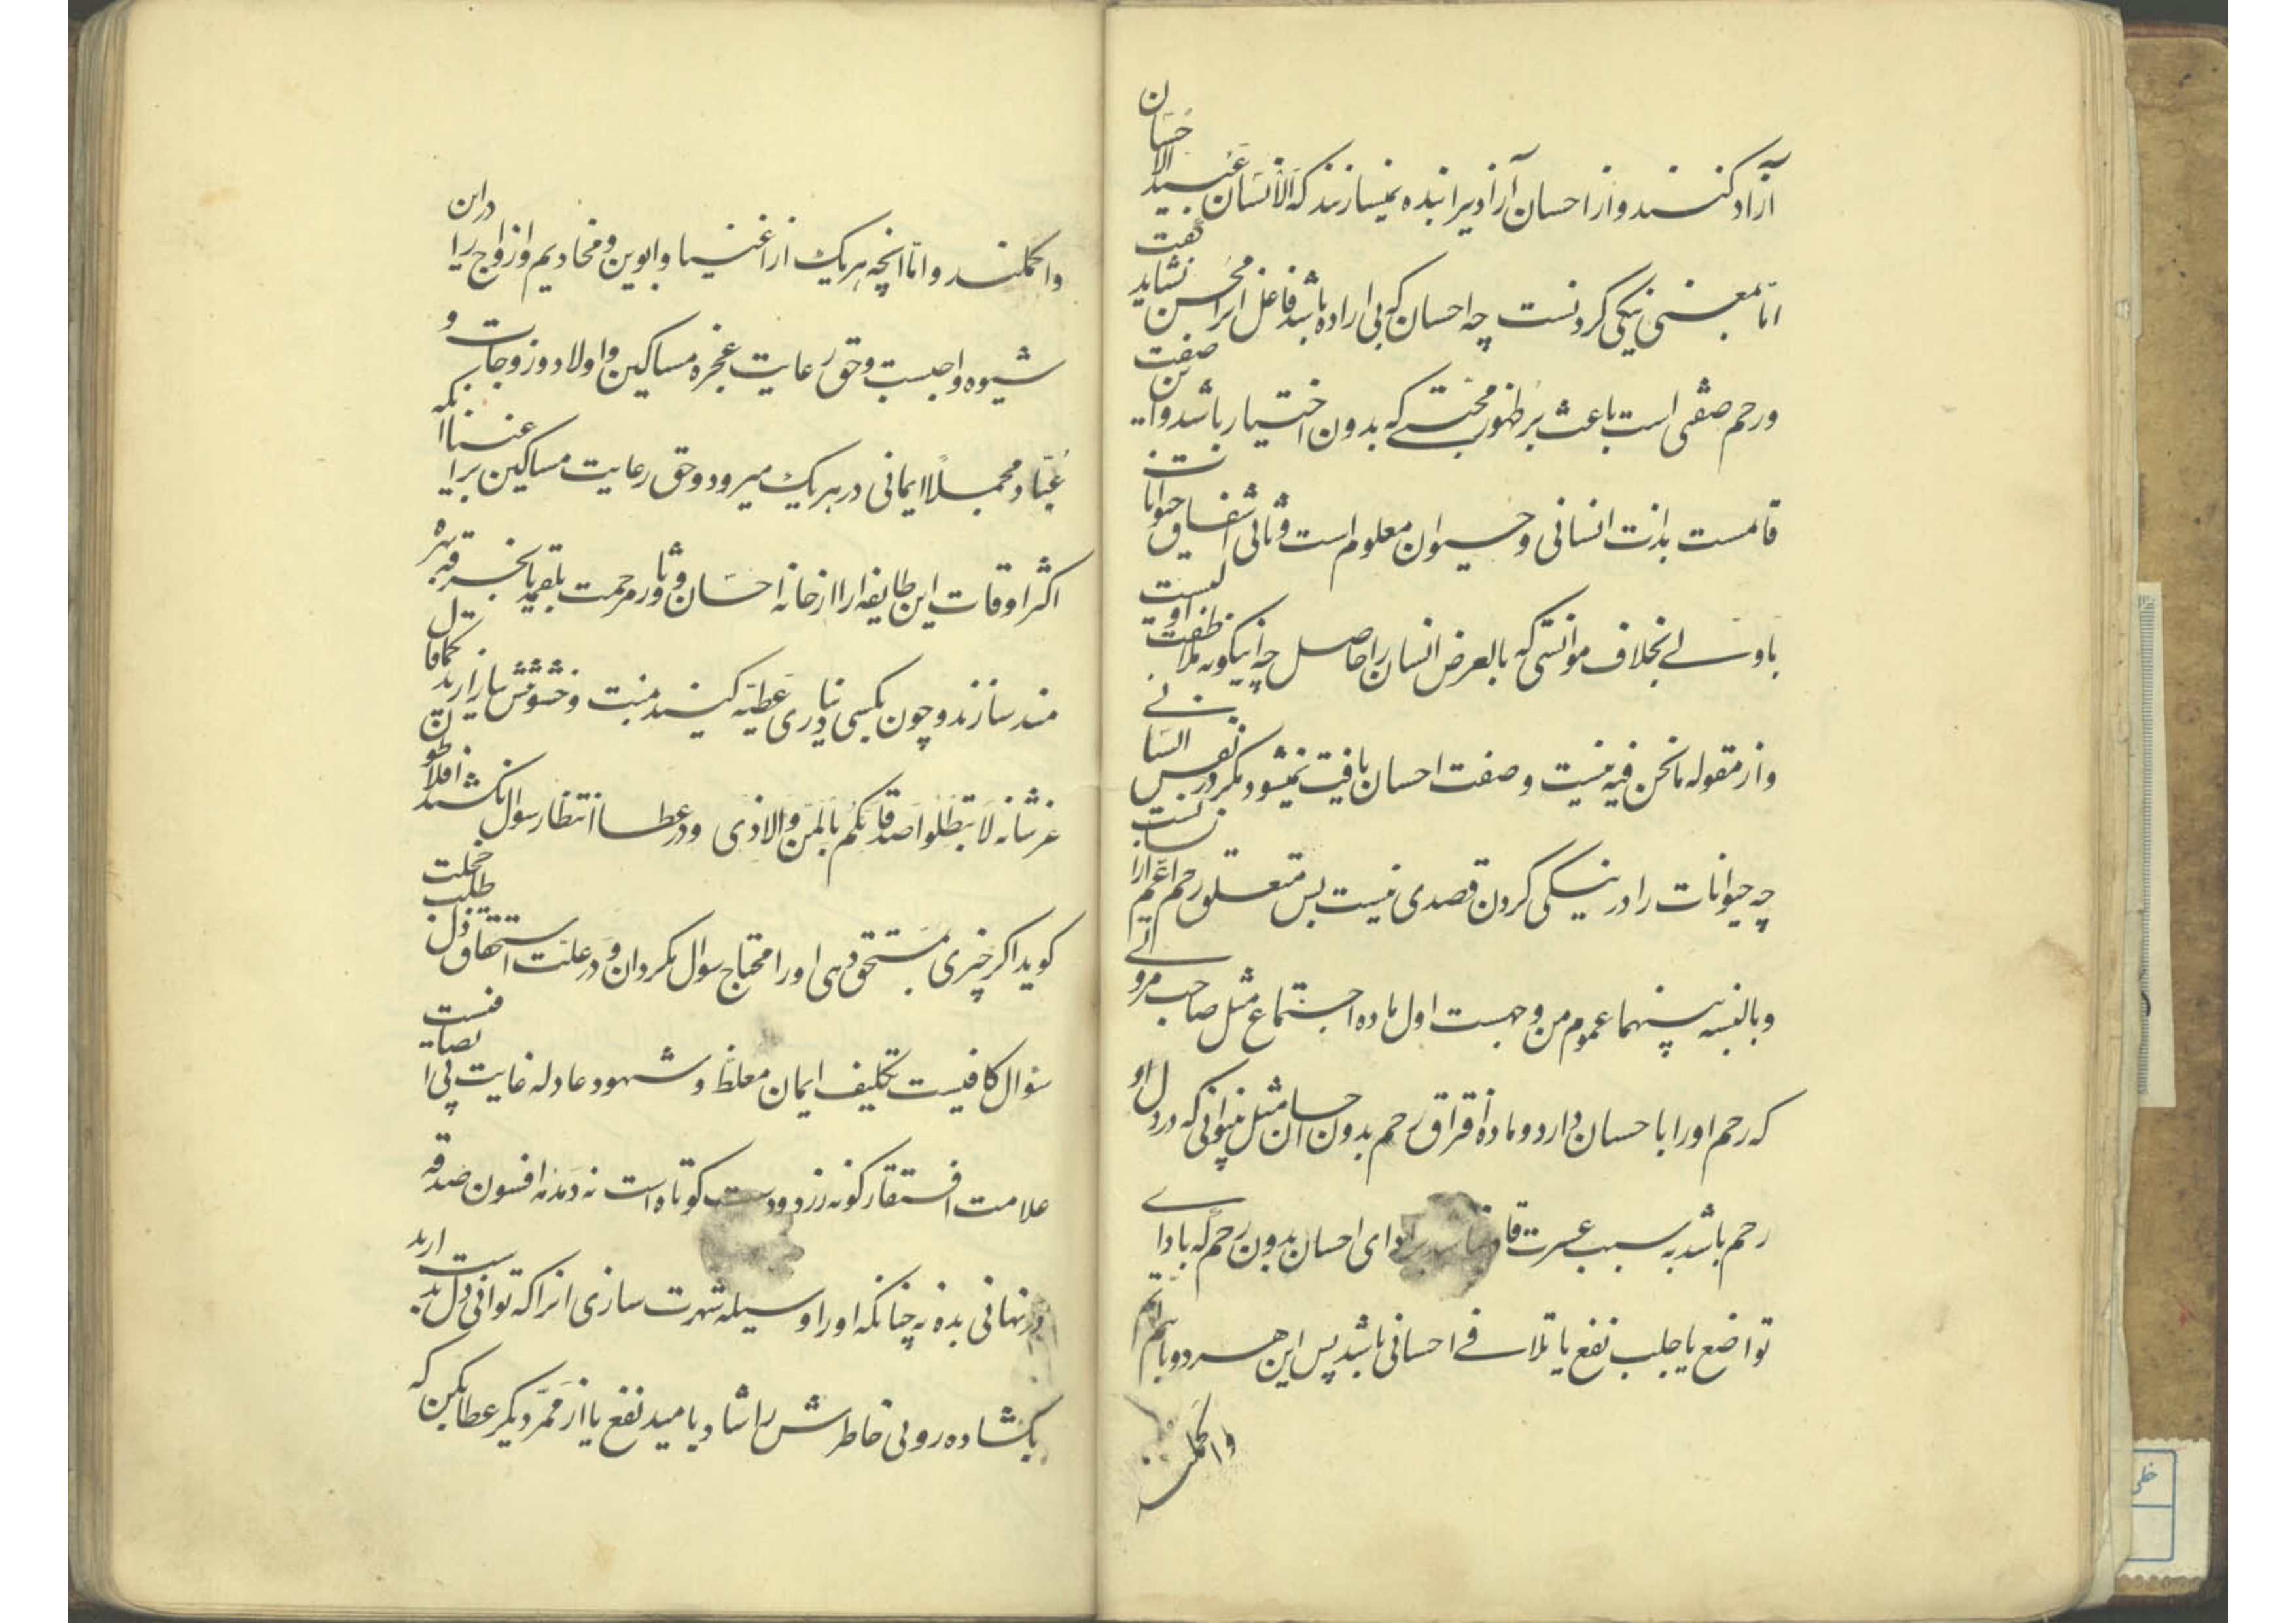 آزاد کنند و از احسان آزاد یرا بنده نمیسازند که الانسان عبید الاحسان
اما معنی نیکی کردنست چه احسان که بی اراده باشد فاعل انرا محسن نشاید گفت
و رحم صفتی است باعث بر ظهور محبتے که بدون اختیار باشد و این صفت
قائمست بذات انسانی و حیوان معلوم است و ثانی اشفاق حیوانات
باولے بخلاف موانستی که بالعرض انسان را حاصل چه اینکونه ملاطفت اولیست
و از مقوله مانحن فیه نیست و صفت احسان یافت نمیشود مکر در نفس انسانے
چه حیوانات را در نیکی کردن قصدی نیست پس متعلق رحم اعم از انسانست
و بالنسبه بینهما عموم من وجهست اول ماده اجتماع مثل صاحب مرو
که رحم او را با احسان دارد و ماده افتراق رحم بدون احسان مثل بینوائی که در دل او
رحم باشد به سبب عسرت ادای احسان بدون رحم که با ادا
تواضع یا جلب نفع یا تلافے احسانی باشد پس این هر دو با هم اتم
و اکملند
و اکملند و اما انچه هریک از اغنیا و ابوین و مخادیم و ازواج را در این
شیوه واجبست و حق رعایت عجزه مساکین و اولاد و زوجات و
عباد مجملا ایمائی در هریک میرود و حق رعایت مساکین بر اغنیا آنکه
اکثر اوقات این طایفه را از خانه احسان و مرحمت بلقمه یا بخرقه بهره
مند سازند و چون بکسی نیاوری عطیه کنند منت و خشونتش نیازارند کما قال
عز شانه لا تبطلوا صدقاتکم بالمن والاذی و در عطا انتظار سوال نکشند افلاطون
کوید اکر چیزی بمستحق دهی او را محتاج سوال مکردان و در علت استحقاق ذل طلب خجلت
سؤال کافیست تکلیف ایمان مغلظ و شهود عادله غایت بی انصافیست
علامت افتقار کونه زرد و دست کوتاه است نه دمدمه افسون صدقه
در نهانی بده نه چنانکه او را وسیله شهرت سازی انرا که توانی دل بدست ارید
بکشاده روئی خاطرش را شاد بامید نفع یا از ممر دیکر عطا مکن که